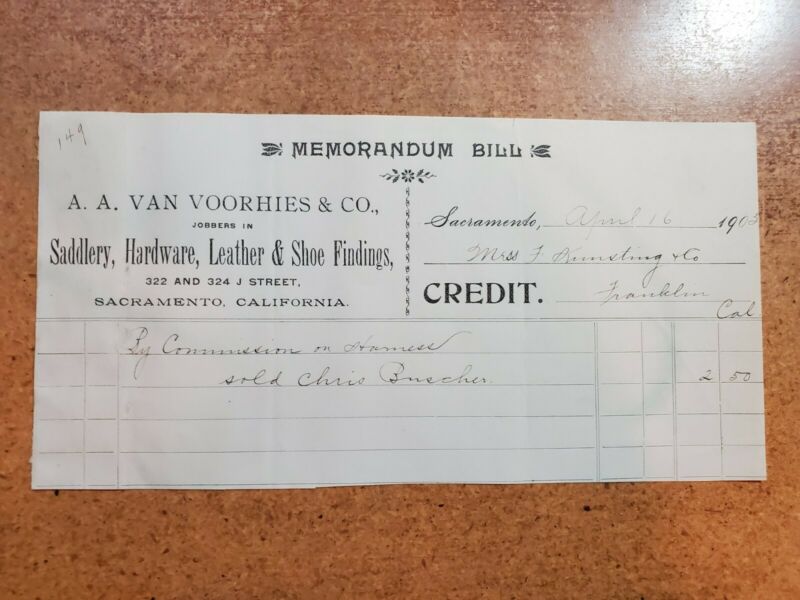 149
MEMORANDUM BILL
A. A. VAN VOORHIES & CO.,
JOBBERS IN
Saddlery, Hardware, Leather & Shoe Findings,
322 AND 324 J STREET,
SACRAMENTO, CALIFORNIA.
Sacramento, April 16 1903
Mess F Kunsting & Co
CREDIT. Franklin
Cal
By Commission on Harness
sold Chris Buscher. 2 50